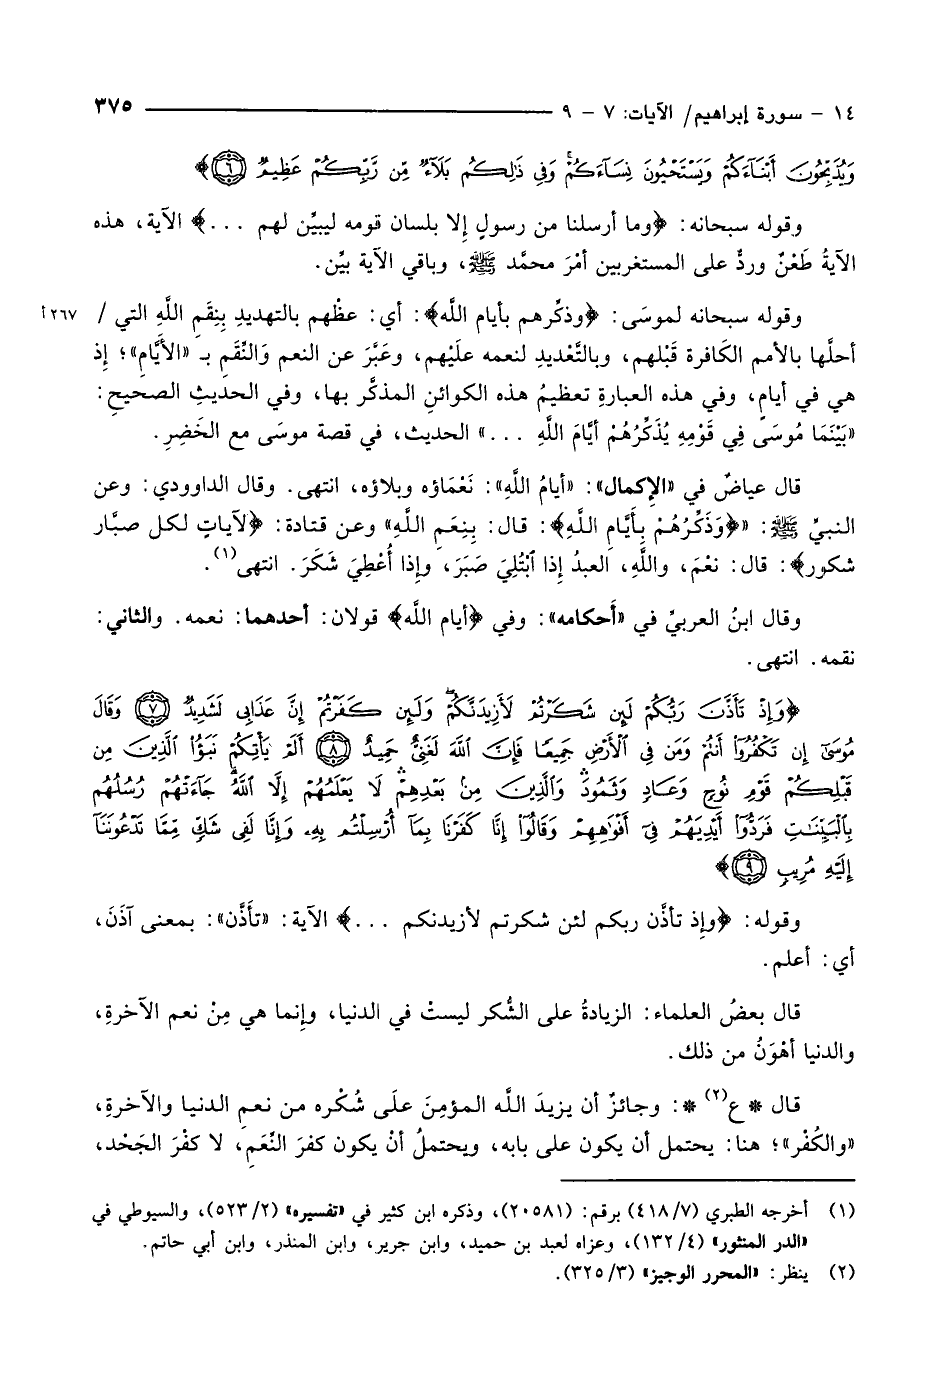 ١٤ - سورة إبراهيم/ الآيات: ٧ - ٩ ــــــ ٣٧٥
وَيُذَبِّحُونَ أَبْنَآءَكُمْ وَيَسْتَحْيُونَ نِسَآءَكُمْ وَفِى ذَٰلِكُم بَلَآءٌ مِّن رَّبِّكُمْ عَظِيمٌ (٦)﴾
وقوله سبحانه: ﴿وما أرسلنا من رسولٍ إِلا بلسان قومه ليبيِّن لهم ...﴾ الآية، هذه
الآيةُ طَعْنٌ وردٌّ على المستغربين أمْرَ محمَّد ﷺ، وباقي الآية بيِّن.
وقوله سبحانه لموسَى: ﴿وذكِّرهم بأيام اللَّه﴾: أي: عظْهم بالتهديدِ بِنِقَمِ اللَّهِ التي / ٢٦٧أ
أحلَّها بالأمم الكَافرة قَبْلهم، وبالتَّعْديدِ لنعمه علَيْهم، وعَبَّرَ عن النعم وَالنِّقَم بـ «الأَيَّامِ»؛ إِذ
هي في أيامٍ، وفي هذه العبارةِ تعظيمُ هذه الكوائنِ المذكَّر بها، وفي الحديثِ الصحيح:
«بَيْنَمَا مُوسَى فِي قَوْمِهِ يُذَكِّرُهُمْ أيَّامَ اللَّهِ ...» الحديث، في قصة موسَى مع الخَضِرِ.
قال عياضٌ في «الإِكمال»: «أيامُ اللَّهِ»: نَعْمَاؤه وبلاؤه، انتهى. وقال الداوودي: وعن
النبيِّ ﷺ: «﴿وَذَكِّرْهُمْ بِأَيَّامِ اللَّهِ﴾: قال: بِنِعَمِ اللَّهِ» وعن قتادة: ﴿لآياتٍ لكل صبَّار
شكور﴾: قال: نعْمَ، واللَّهِ، العبدُ إِذا ٱبْتُلِيَ صَبَرَ، وإِذا أُعْطِيَ شَكَرَ. انتهى(١).
وقال ابنُ العربيِّ في «أَحكامه»: وفي ﴿أيام اللَّه﴾ قولان: أحدهما: نعمه. والثاني:
نقمه. انتهى.
﴿وَإِذْ تَأَذَّنَ رَبُّكُمْ لَئِن شَكَرْتُمْ لَأَزِيدَنَّكُمْ وَلَئِن كَفَرْتُمْ إِنَّ عَذَابِى لَشَدِيدٌ (٧) وَقَالَ
مُوسَىٰٓ إِن تَكْفُرُوٓا۟ أَنتُمْ وَمَن فِى ٱلْأَرْضِ جَمِيعًا فَإِنَّ ٱللَّهَ لَغَنِىٌّ حَمِيدٌ (٨) أَلَمْ يَأْتِكُمْ نَبَؤُا۟ ٱلَّذِينَ مِن
قَبْلِكُمْ قَوْمِ نُوحٍ وَعَادٍ وَثَمُودَ ۛ وَٱلَّذِينَ مِنۢ بَعْدِهِمْ ۛ لَا يَعْلَمُهُمْ إِلَّا ٱللَّهُ ۚ جَآءَتْهُمْ رُسُلُهُم
بِٱلْبَيِّنَٰتِ فَرَدُّوٓا۟ أَيْدِيَهُمْ فِىٓ أَفْوَٰهِهِمْ وَقَالُوٓا۟ إِنَّا كَفَرْنَا بِمَآ أُرْسِلْتُم بِهِۦ وَإِنَّا لَفِى شَكٍّ مِّمَّا تَدْعُونَنَآ
إِلَيْهِ مُرِيبٍ (٩)﴾
وقوله: ﴿وإِذ تأذَّن ربكم لئن شكرتم لأزيدنكم ...﴾ الآية: «تأَذَّن»: بمعنى آذَنَ،
أي: أعلم.
قال بعضُ العلماء: الزيادةُ على الشُّكر ليستْ في الدنيا، وإِنما هي مِنْ نعم الآخرةِ،
والدنيا أهْوَنُ من ذلك.
قال * ع(٢) *: وجائزٌ أن يزيدَ اللَّه المؤمِنَ علَى شُكْره من نعمِ الدنيا والآخرةِ،
«والكُفْر»؛ هنا: يحتمل أن يكون على بابه، ويحتملُ أنْ يكون كفرَ النِّعَمِ، لا كفْرَ الجَحْد،
(١) أخرجه الطبري (٤١٨/٧) برقم: (٢٠٥٨١)، وذكره ابن كثير في «تفسيره» (٥٢٣/٢)، والسيوطي في
«الدر المنثور» (١٣٢/٤)، وعزاه لعبد بن حميد، وابن جرير، وابن المنذر، وابن أبي حاتم.
(٢) ينظر: «المحرر الوجيز» (٣٢٥/٣).